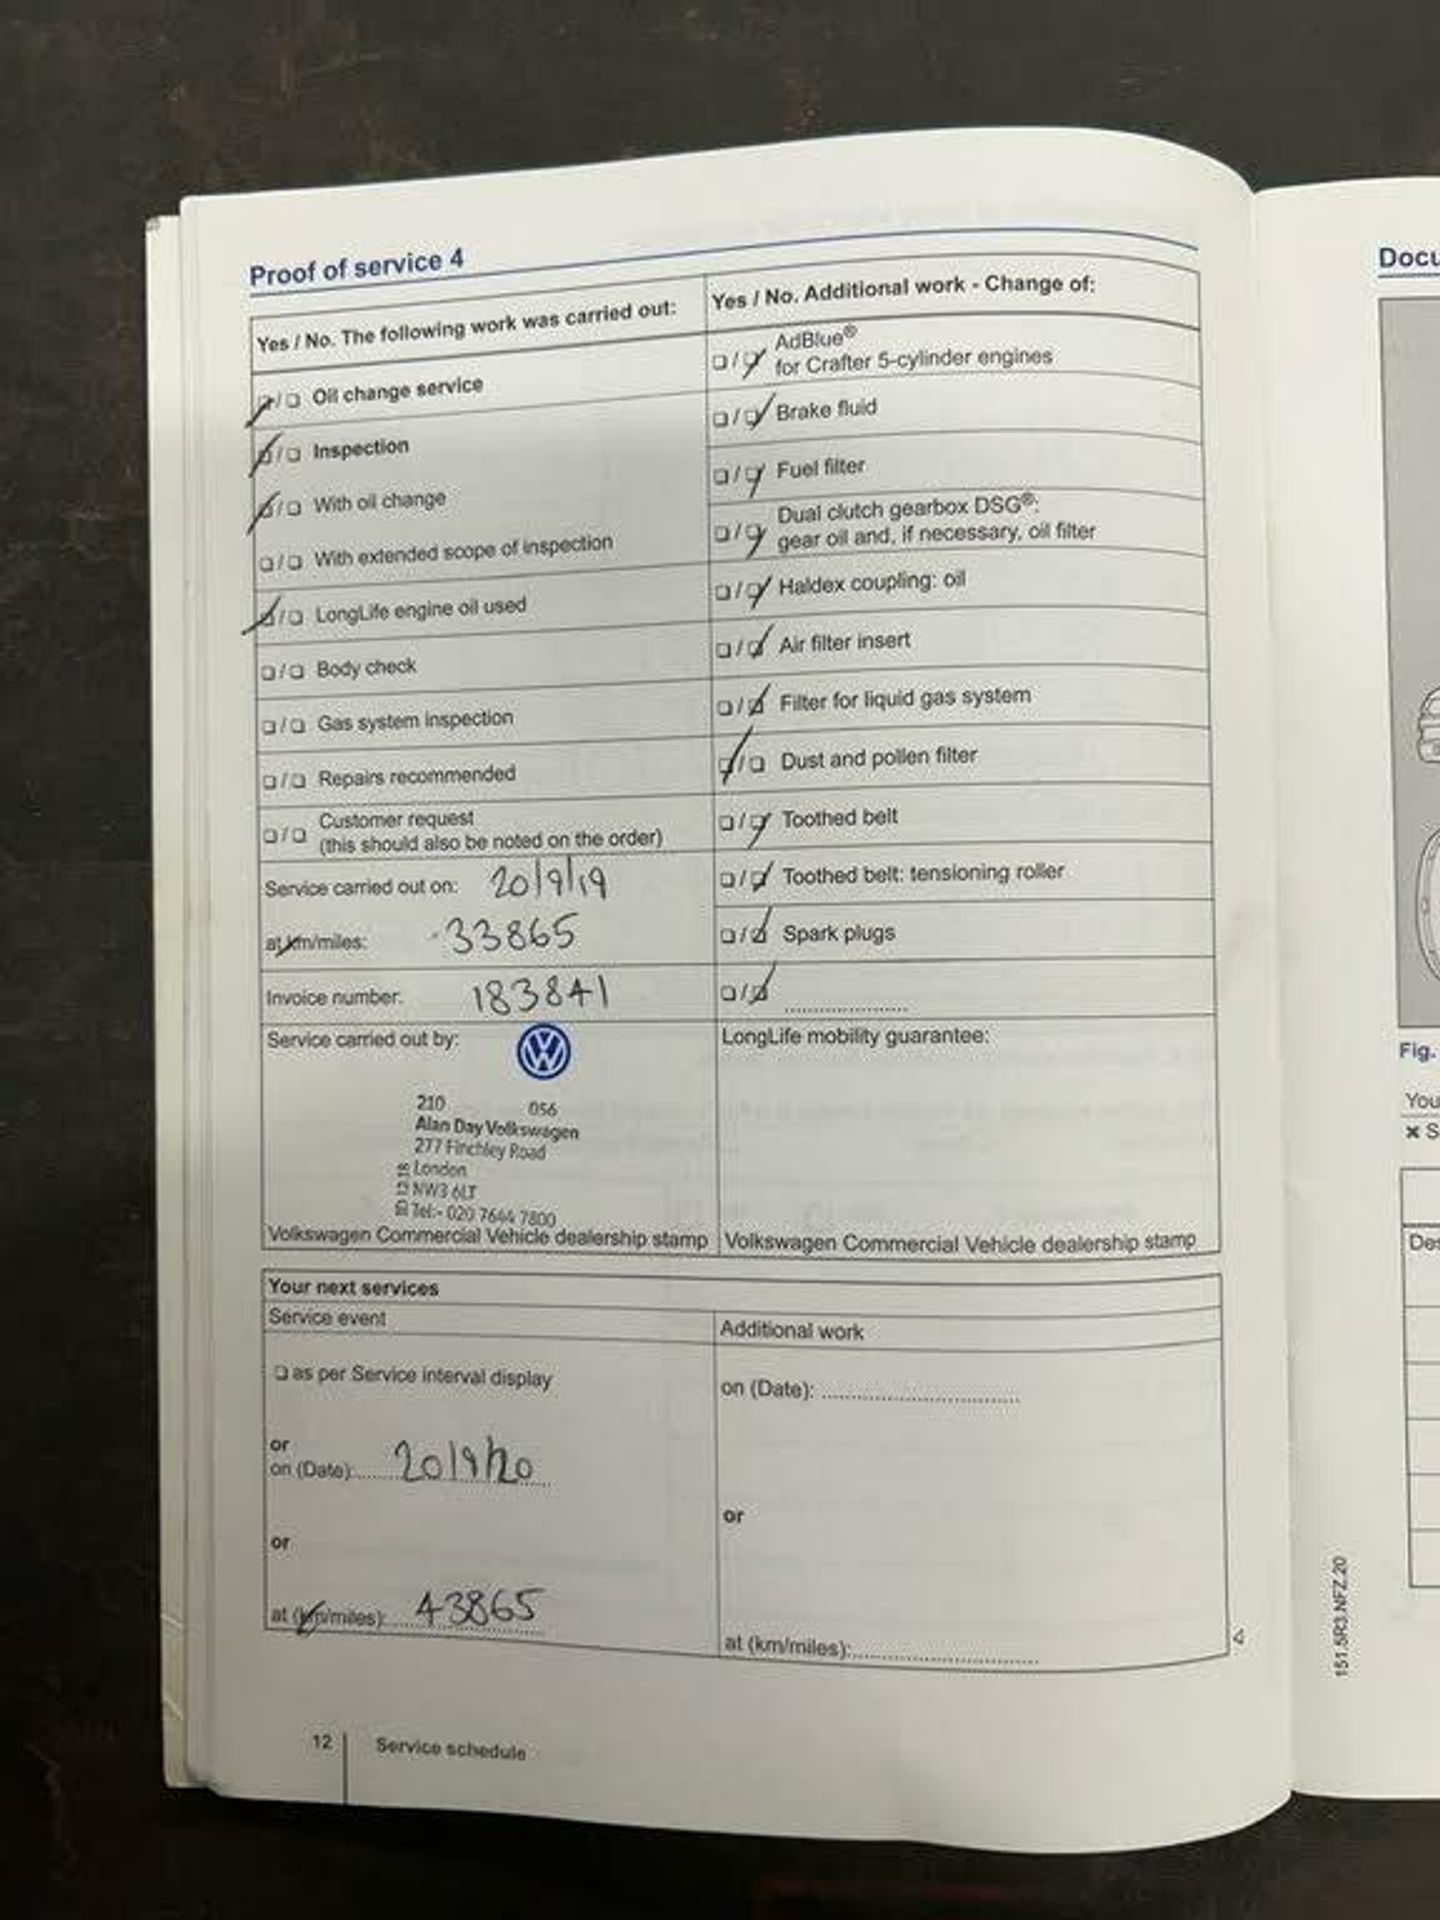 Proof of service 4
Yes / No. The following work was carried out:
❏/❏ Oil change service
❏/❏ Inspection
❏/❏ With oil change
❏/❏ With extended scope of inspection
❏/❏ LongLife engine oil used
❏/❏ Body check
❏/❏ Gas system inspection
❏/❏ Repairs recommended
❏/❏ Customer request
(this should also be noted on the order)
Service carried out on: 20/9/19
at km/miles: 33865
Invoice number: 183841
Service carried out by:
210 056
Alan Day Volkswagen
277 Finchley Road
London
NW3 6LT
Tel:- 020 7644 7800
Volkswagen Commercial Vehicle dealership stamp
Yes / No. Additional work - Change of:
❏/❏ AdBlue®
for Crafter 5-cylinder engines
❏/❏ Brake fluid
❏/❏ Fuel filter
❏/❏ Dual clutch gearbox DSG®:
gear oil and, if necessary, oil filter
❏/❏ Haldex coupling: oil
❏/❏ Air filter insert
❏/❏ Filter for liquid gas system
❏/❏ Dust and pollen filter
❏/❏ Toothed belt
❏/❏ Toothed belt: tensioning roller
❏/❏ Spark plugs
❏/❏ ....................
LongLife mobility guarantee:
Volkswagen Commercial Vehicle dealership stamp
Your next services
Service event
❏ as per Service interval display
or
on (Date): 20/9/20
or
at (km/miles): 43865
Additional work
on (Date): ....................
or
at (km/miles): ....................
12 Service schedule
Docu
Fig.
You
× S
Des
151.5R3.NFZ.20